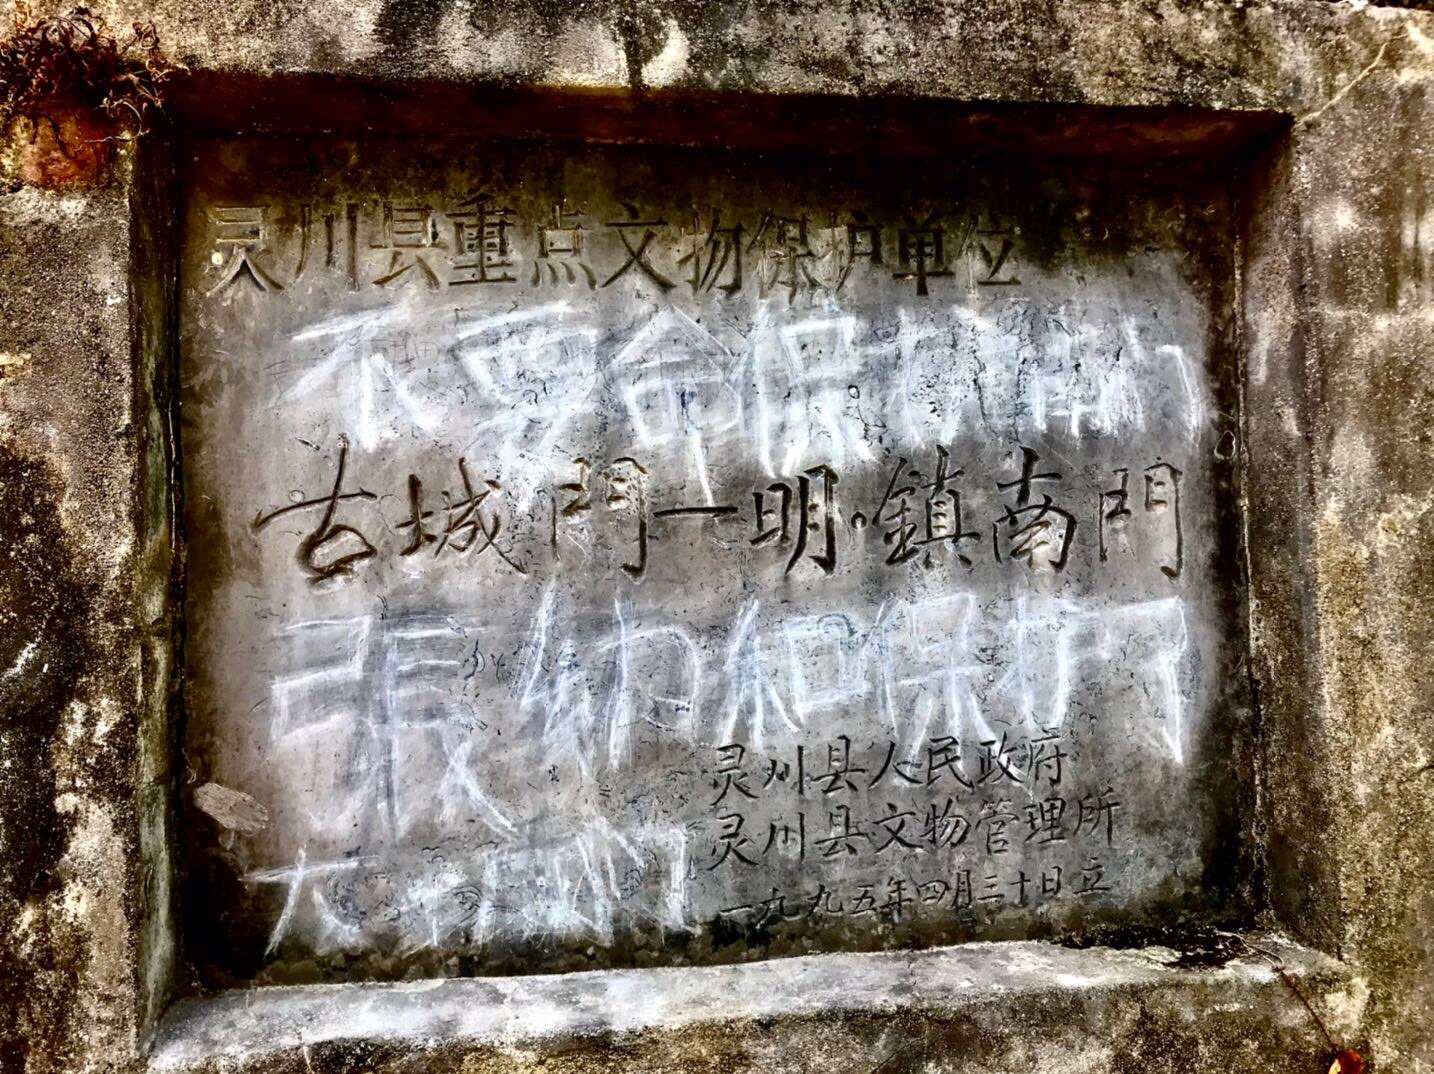 灵川县重点文物保护单位
不要命保护
古城門—明·鎮南門
張 和保护
灵川县人民政府
灵川县文物管理所
一九九五年四月三十日立